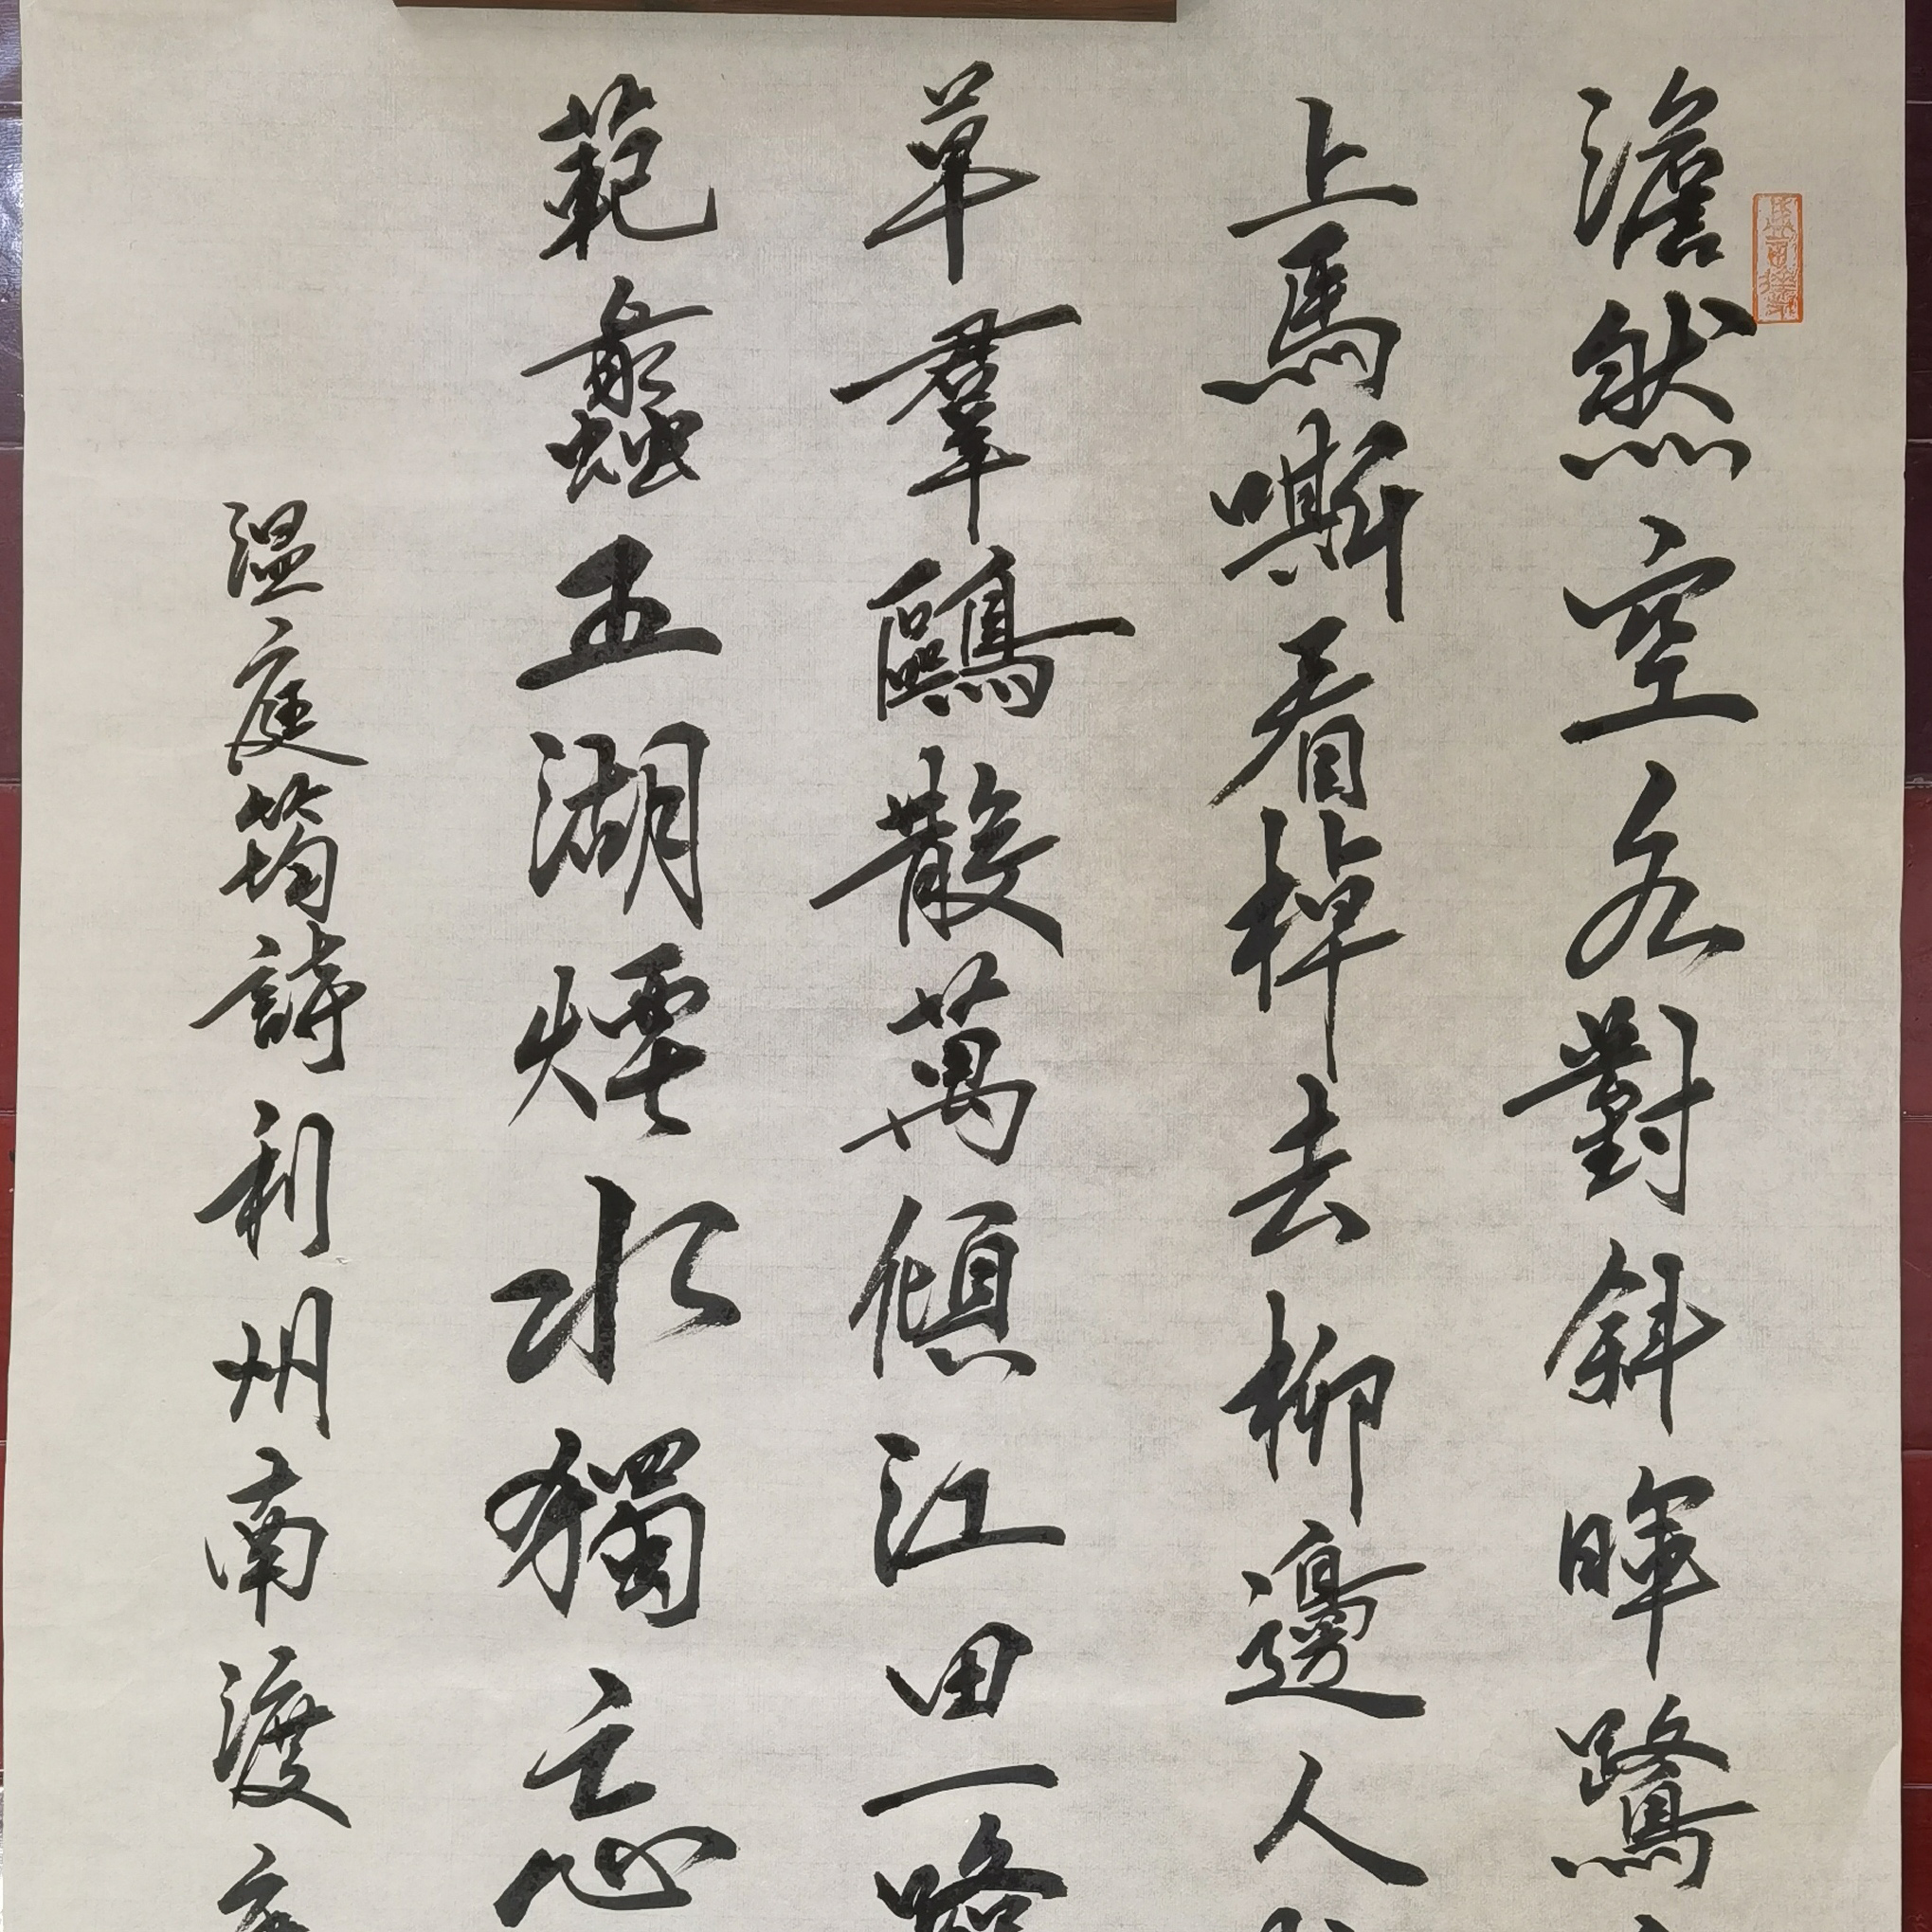 澹然空水對斜暉鷺
上馬嘶看棹去柳邊人
草羣鷗散萬傾江田一路
範蠡五湖煙水獨忘
溫庭筠詩利州南渡